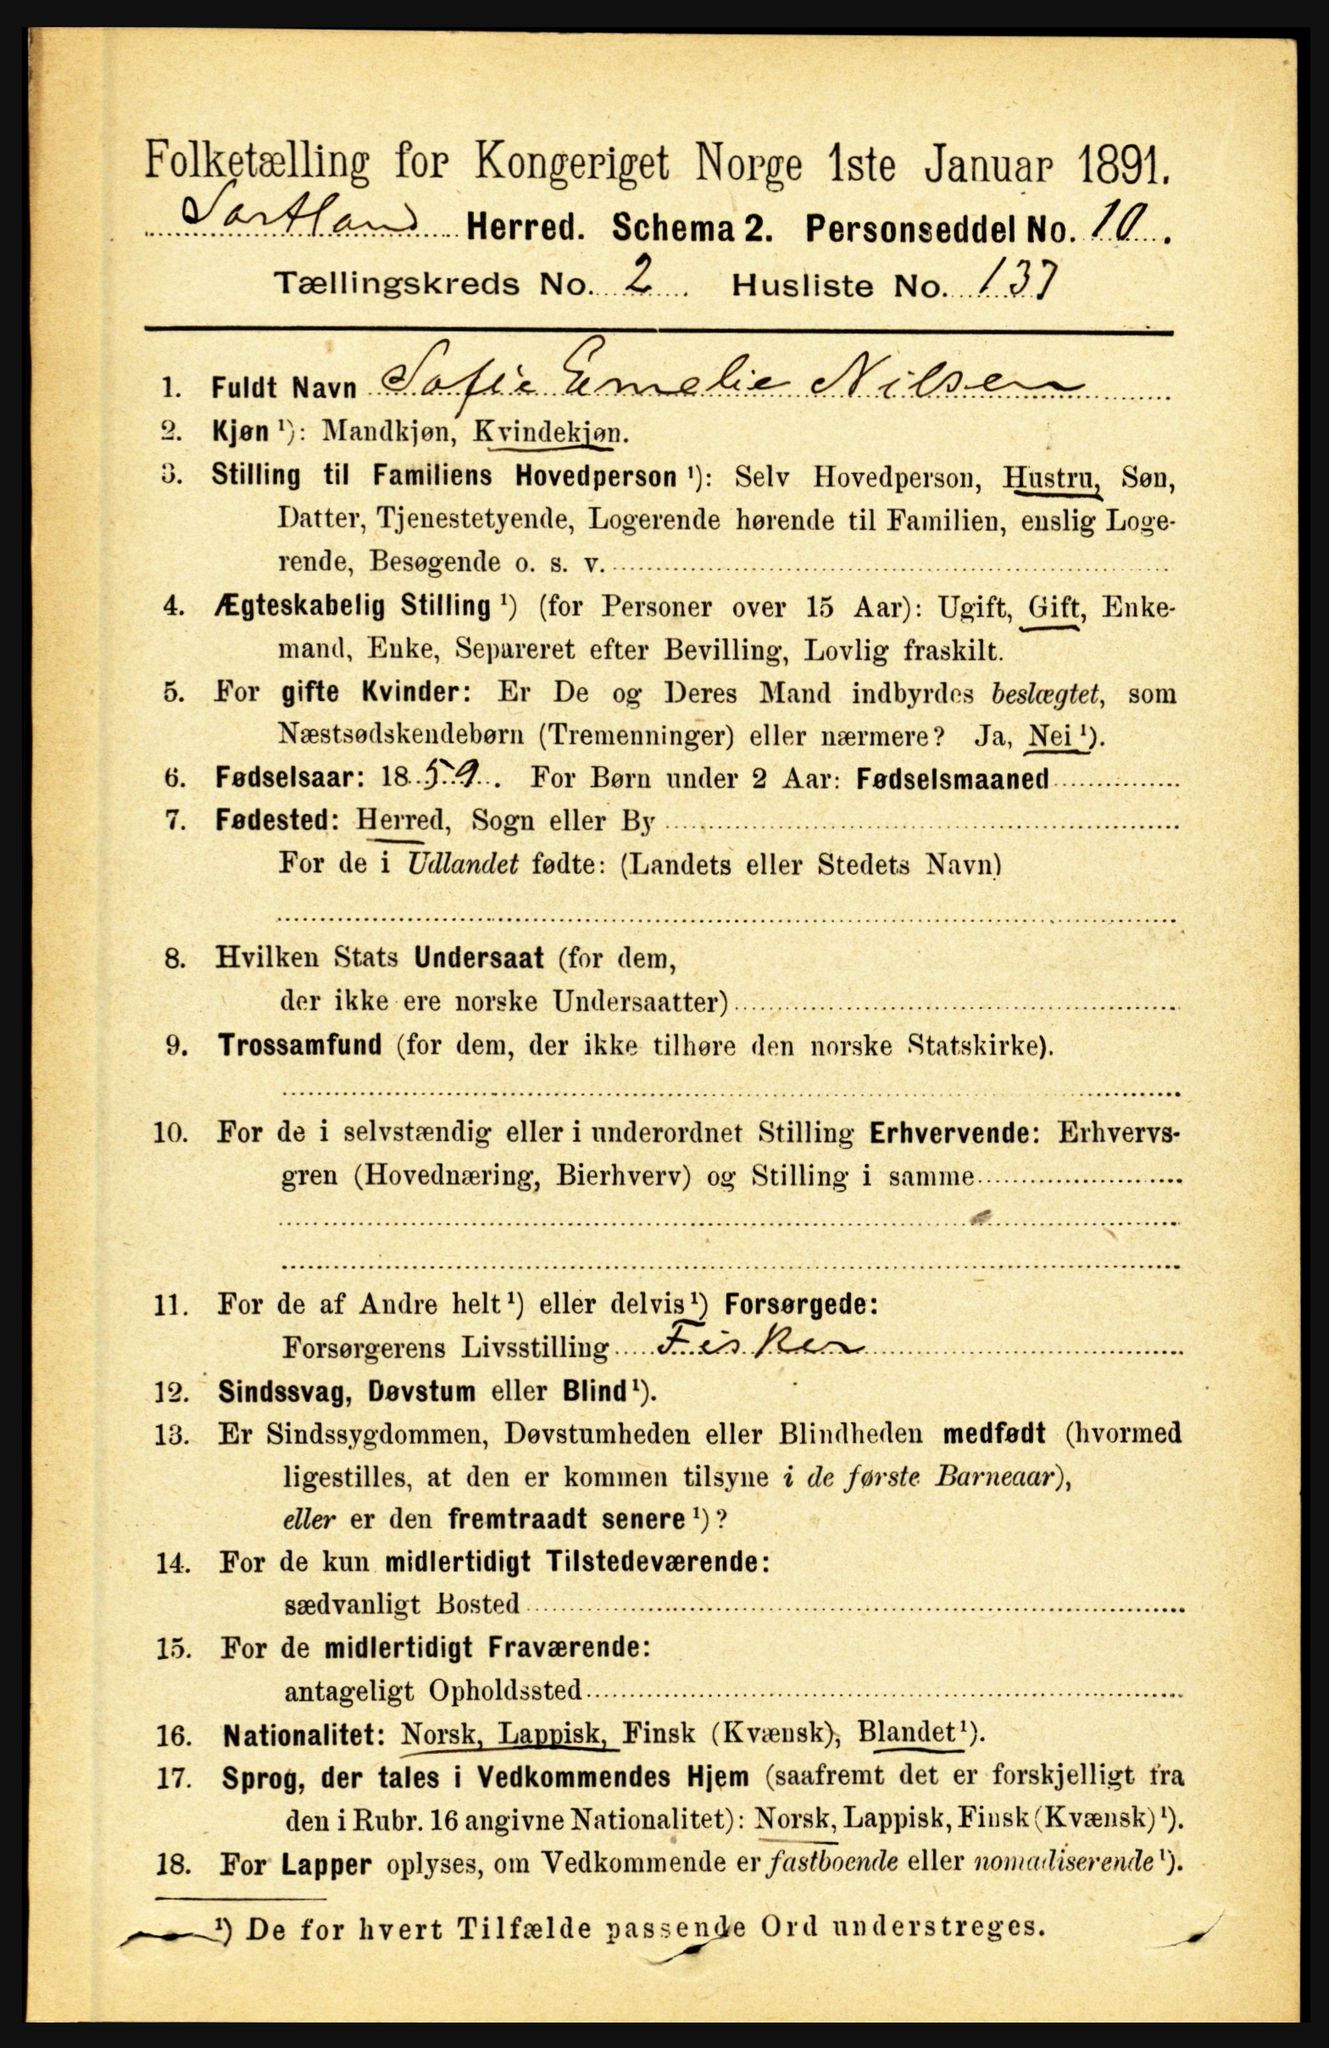 Folketælling for Kongeriget Norge 1ste Januar 1891.
Sortland Herred. Schema 2. Personseddel No. 10.
Tællingskreds No. 2. Husliste No. 137
1. Fuldt Navn Sofie Emelie Nilsen
2. Kjøn ¹): Mandkjøn, Kvindekjøn.
3. Stilling til Familiens Hovedperson ¹): Selv Hovedperson, Hustru, Søn,
Datter, Tjenestetyende, Logerende hørende til Familien, enslig Loge-
rende, Besøgende o. s. v.
4. Ægteskabelig Stilling ¹) (for Personer over 15 Aar): Ugift, Gift, Enke-
mand, Enke, Separeret efter Bevilling, Lovlig fraskilt.
5. For gifte Kvinder: Er De og Deres Mand indbyrdes beslægtet, som
Næstsødskendebørn (Tremenninger) eller nærmere? Ja, Nei ¹).
6. Fødselsaar: 1859. For Børn under 2 Aar: Fødselsmaaned
7. Fødested: Herred, Sogn eller By
For de i Udlandet fødte: (Landets eller Stedets Navn)
8. Hvilken Stats Undersaat (for dem,
der ikke ere norske Undersaatter)
9. Trossamfund (for dem, der ikke tilhøre den norske Statskirke).
10. For de i selvstændig eller i underordnet Stilling Erhvervende: Erhvervs-
gren (Hovednæring, Bierhverv) og Stilling i samme
11. For de af Andre helt ¹) eller delvis ¹) Forsørgede:
Forsørgerens Livsstilling Fisker
12. Sindssvag, Døvstum eller Blind ¹).
13. Er Sindssygdommen, Døvstumheden eller Blindheden medfødt (hvormed
ligestilles, at den er kommen tilsyne i de første Barneaar),
eller er den fremtraadt senere ¹)?
14. For de kun midlertidigt Tilstedeværende:
sædvanligt Bosted
15. For de midlertidigt Fraværende:
antageligt Opholdssted
16. Nationalitet: Norsk, Lappisk, Finsk (Kvænsk), Blandet ¹).
17. Sprog, der tales i Vedkommendes Hjem (saafremt det er forskjelligt fra
den i Rubr. 16 angivne Nationalitet): Norsk, Lappisk, Finsk (Kvænsk) ¹).
18. For Lapper oplyses, om Vedkommende er fastboende eller nomadiserende ¹).
¹) De for hvert Tilfælde passende Ord understreges.